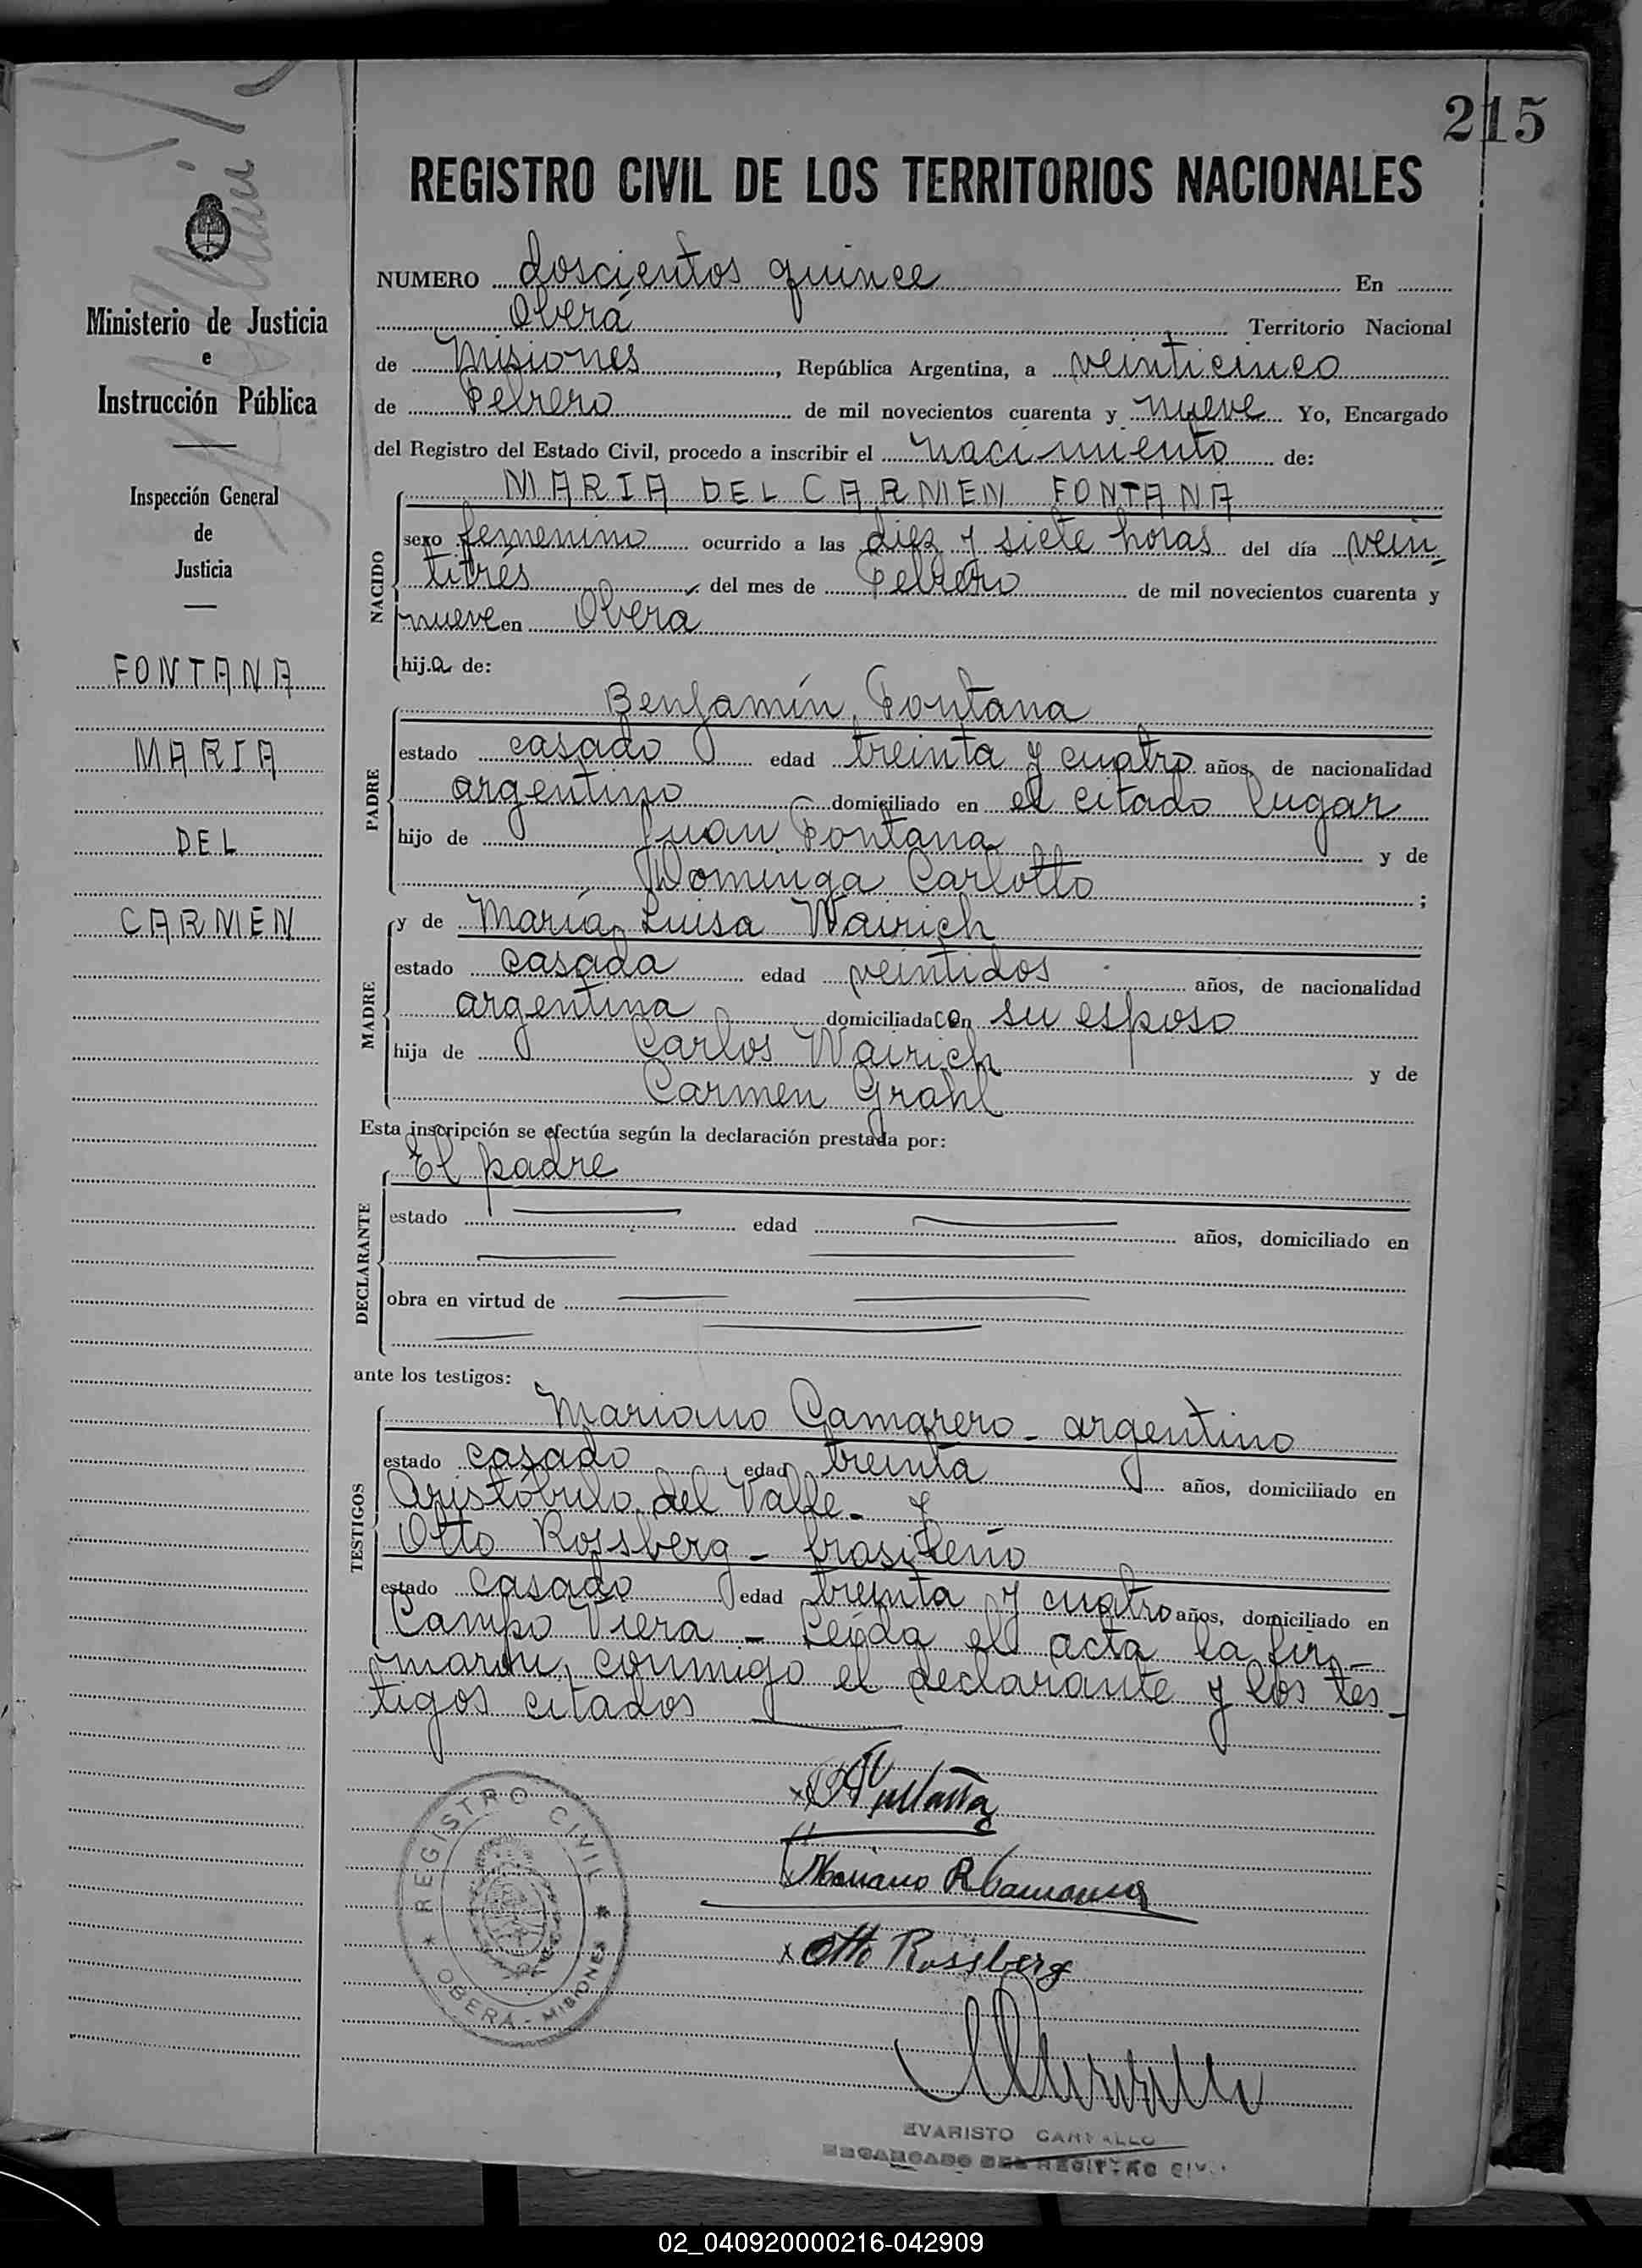 215
REGISTRO CIVIL DE LOS TERRITORIOS NACIONALES
Ministerio de Justicia
e
Instrucción Pública
Inspección General
de
Justicia
FONTANA
MARIA
DEL
CARMEN
NUMERO doscientos quince En
Oberá Territorio Nacional
de Misiones, República Argentina, a veinticinco
de Febrero de mil novecientos cuarenta y nueve Yo, Encargado
del Registro del Estado Civil, procedo a inscribir el nacimiento de:
MARIA DEL CARMEN FONTANA
NACIDO
sexo femenino ocurrido a las diez y siete horas del día vein-
titrés del mes de Febrero de mil novecientos cuarenta y
nueve en Oberá
hija de:
Benjamín Fontana
PADRE
estado casado edad treinta y cuatro años, de nacionalidad
argentino domiciliado en el citado lugar
hijo de Juan Fontana y de
Dominga Carlotto ;
MADRE
y de María Luisa Wairich
estado casada edad veintidos años, de nacionalidad
argentina domiciliada con su esposo
hija de Carlos Wairich y de
Carmen Grahl
Esta inscripción se efectúa según la declaración prestada por:
El padre
DECLARANTE
estado edad años, domiciliado en
obra en virtud de
ante los testigos:
TESTIGOS
Mariano Camarero - argentino
estado casado edad treinta años, domiciliado en
Aristóbulo del Valle - y
Otto Rossberg - brasileño
estado casado edad treinta y cuatro años, domiciliado en
Campo Viera - Leída el acta la fir-
maron conmigo el declarante y los tes-
tigos citados
Otto Rossberg
REGISTRO CIVIL
OBERA - MISIONES
EVARISTO CARVALLO
ENCARGADO DEL REGISTRO CIVIL
02_040920000216-042909